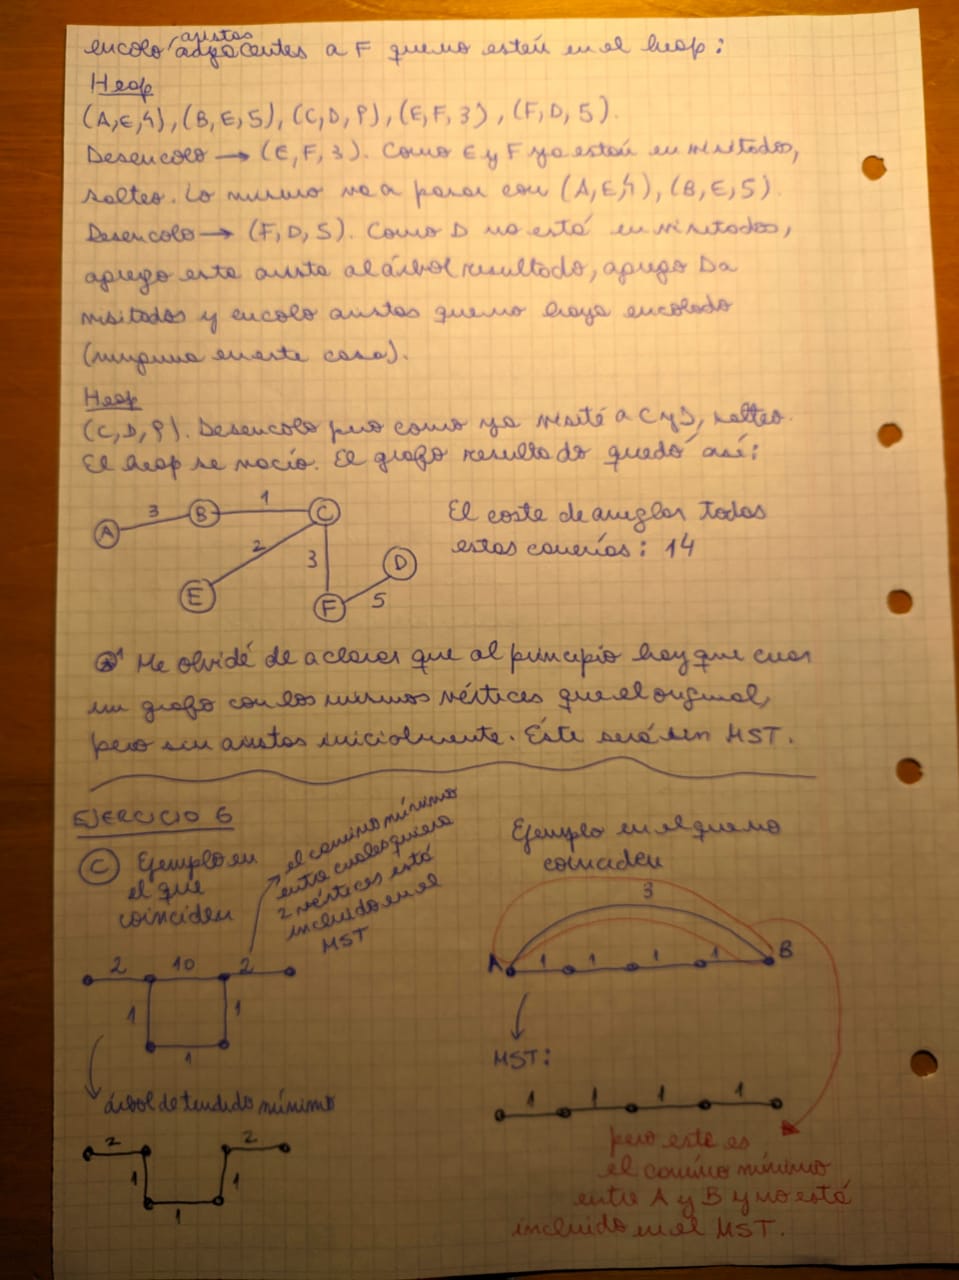 encolo aristas adyacentes a F que no estén en el heap:
Heap
(A,E,4), (B,E,5), (C,D,8), (E,F,3), (F,D,5).
Desencolo → (E,F,3). Como E y F ya están en visitados,
salteo. Lo mismo va a pasar con (A,E,4), (B,E,5).
Desencolo → (F,D,5). Como D no está en visitados,
agrego esta arista al árbol resultado, agrego D a
visitados y encolo aristas que no haya encolado
(ninguna en este caso).
Heap
(C,D,8). Desencolo pero como ya visité a C y D, salteo.
El heap se vació. El grafo resultado quedó así:
A 3 B 1 C
2 3
E F 5 D
El coste de arreglar todas
estas cañerías: 14
*1 Me olvidé de aclarar que al principio hay que crear
un grafo con los mismos vértices que el original,
pero sin aristas inicialmente. Éste será un MST.
EJERCICIO 6
C Ejemplo en
el que
coinciden
el camino mínimo
entre cualesquiera
2 vértices está
incluido en el
MST
2 10 2
1 1
1
árbol de tendido mínimo
2 2
1 1
1
Ejemplo en el que no
coinciden
3
A 1 1 1 1 B
MST:
1 1 1 1
pero este es
el camino mínimo
entre A y B y no está
incluido en el MST.